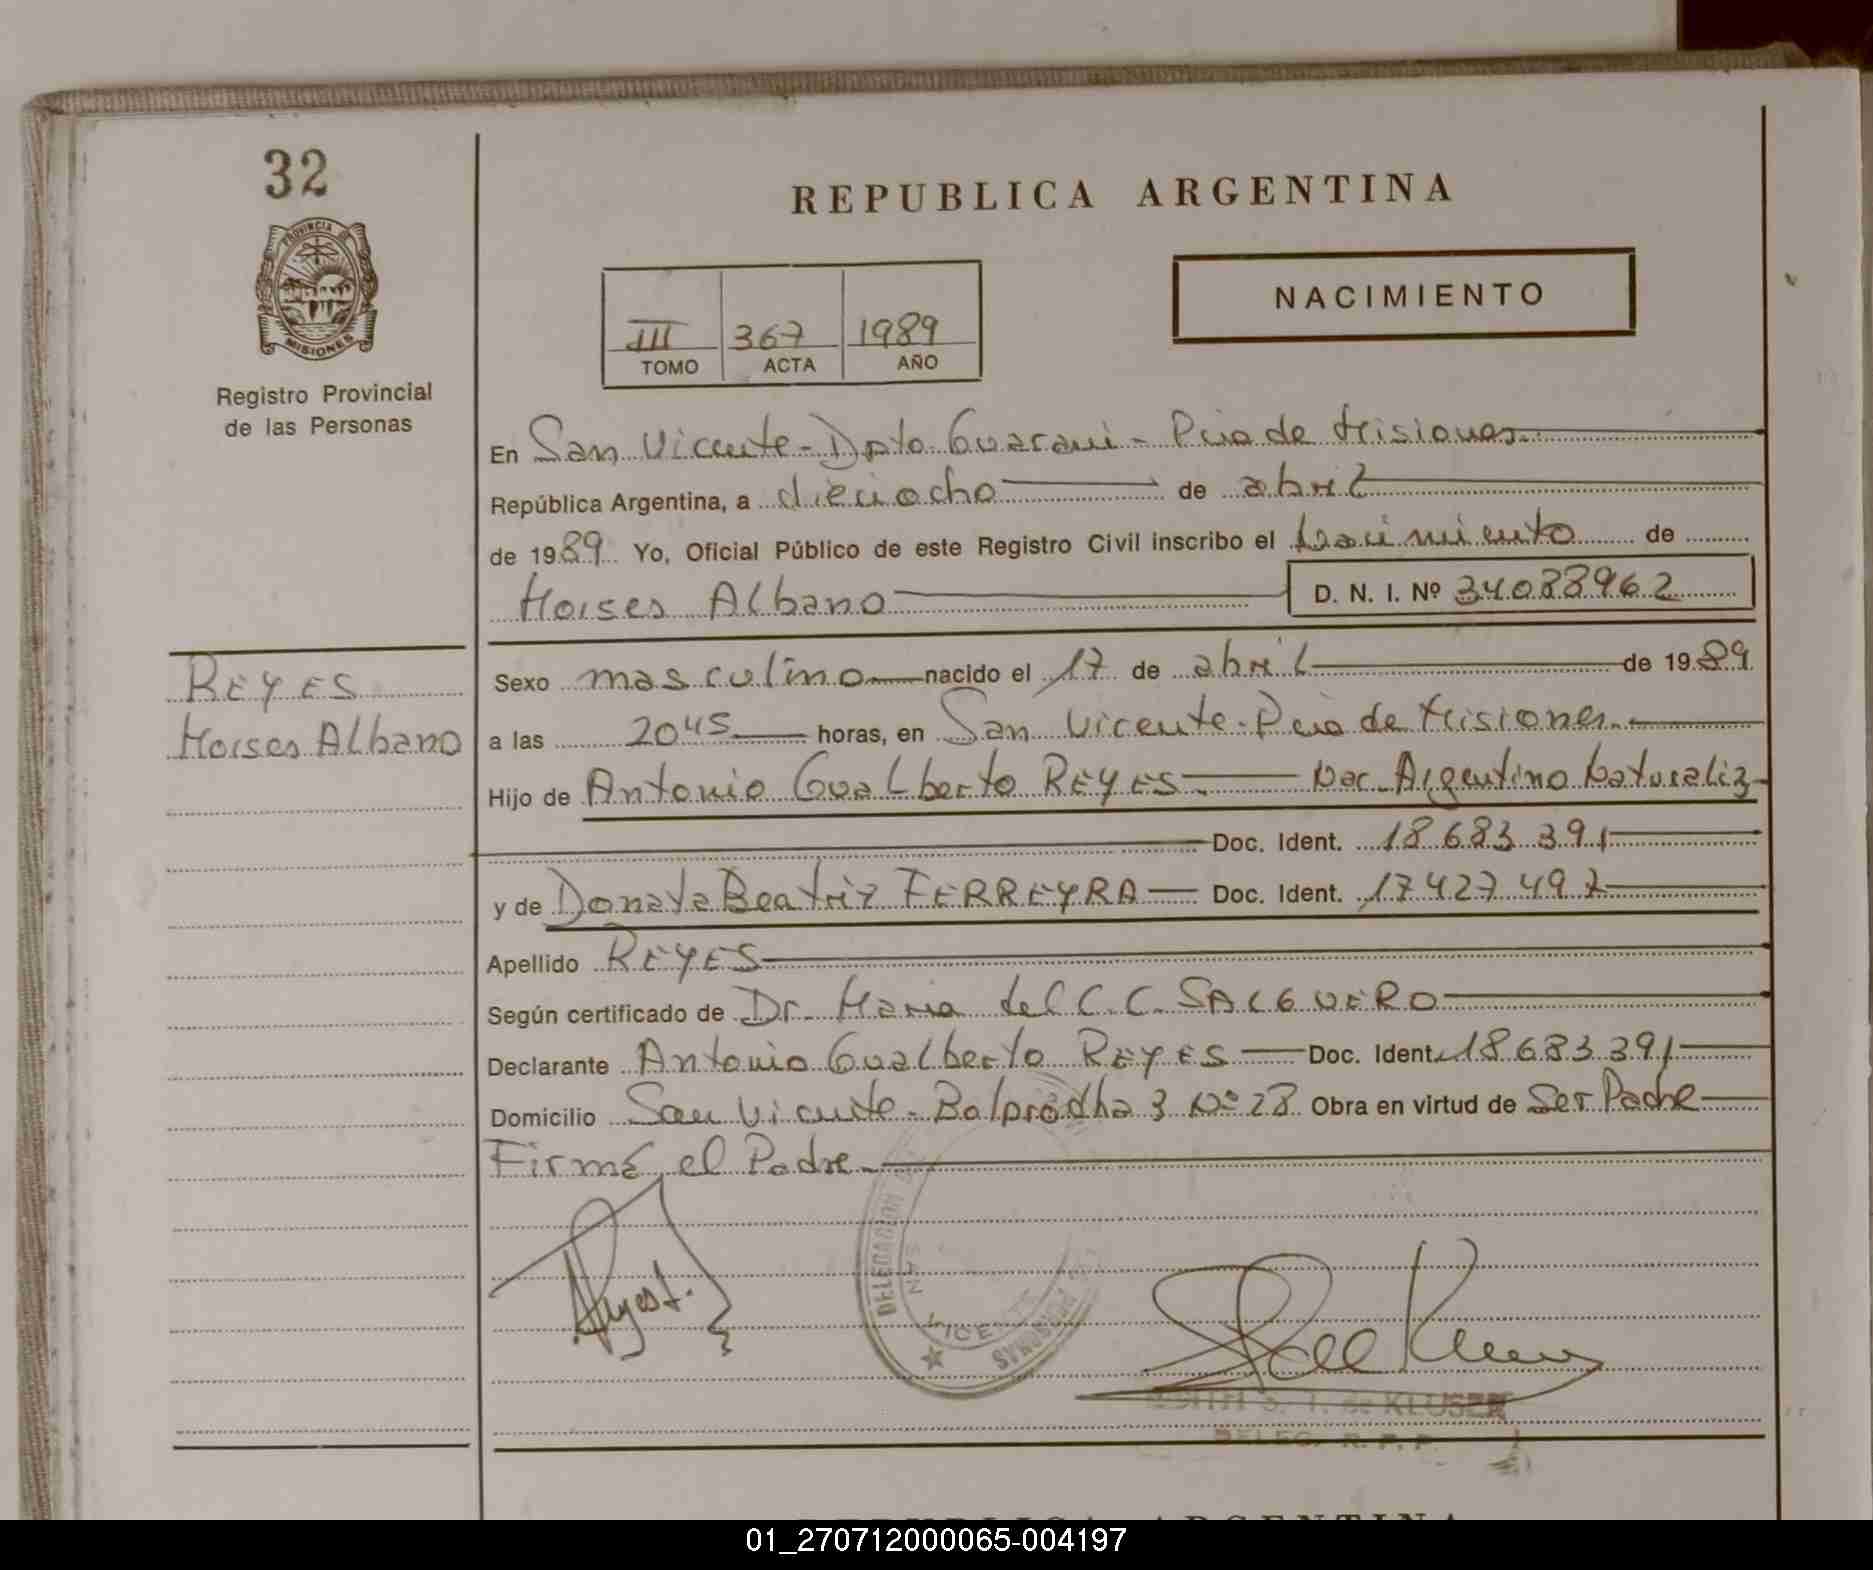 32
REPUBLICA ARGENTINA
PROVINCIA DE
MISIONES
NACIMIENTO
III 367 1989
TOMO ACTA AÑO
Registro Provincial
de las Personas
En San Vicente - Dpto. Guarani - Pcia de Misiones.
República Argentina, a dieciocho de abril
de 1989 Yo, Oficial Público de este Registro Civil inscribo el Nacimiento de
Moises Albano D. N. I. Nº 34088962
REYES
Moises Albano
Sexo masculino nacido el 17 de abril de 1989
a las 2045 horas, en San Vicente - Pcia de Misiones.
Hijo de Antonio Gualberto REYES. Nac. Argentino Naturaliz
Doc. Ident. 18.683.391
y de Donata Beatriz FERREYRA Doc. Ident. 17.427.497
Apellido REYES
Según certificado de Dr. Maria del C. C. SALGUERO
Declarante Antonio Gualberto REYES Doc. Ident. 18.683.391
Domicilio San Vicente. Nº 28 Obra en virtud de Ser Padre
Firma el Padre
DELEGACION
SAN VICENTE
PERSONAS
S. T. de KLUSER
DELEG. R. P. P.
REPUBLICA ARGENTINA
01_270712000065-004197